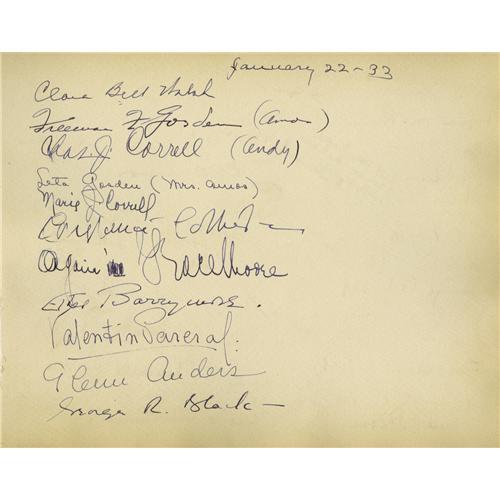 January 22-33
Clara Bell Walsh
Freeman F. Gosden (Amos)
Chas. J. Correll (Andy)
Leta Gosden (Mrs. Amos)
Marie J Correll
Constance Collier
Again Grace Moore
Ethel Barrymore.
Valentin Parera.
Glenn Anders
George R. Black